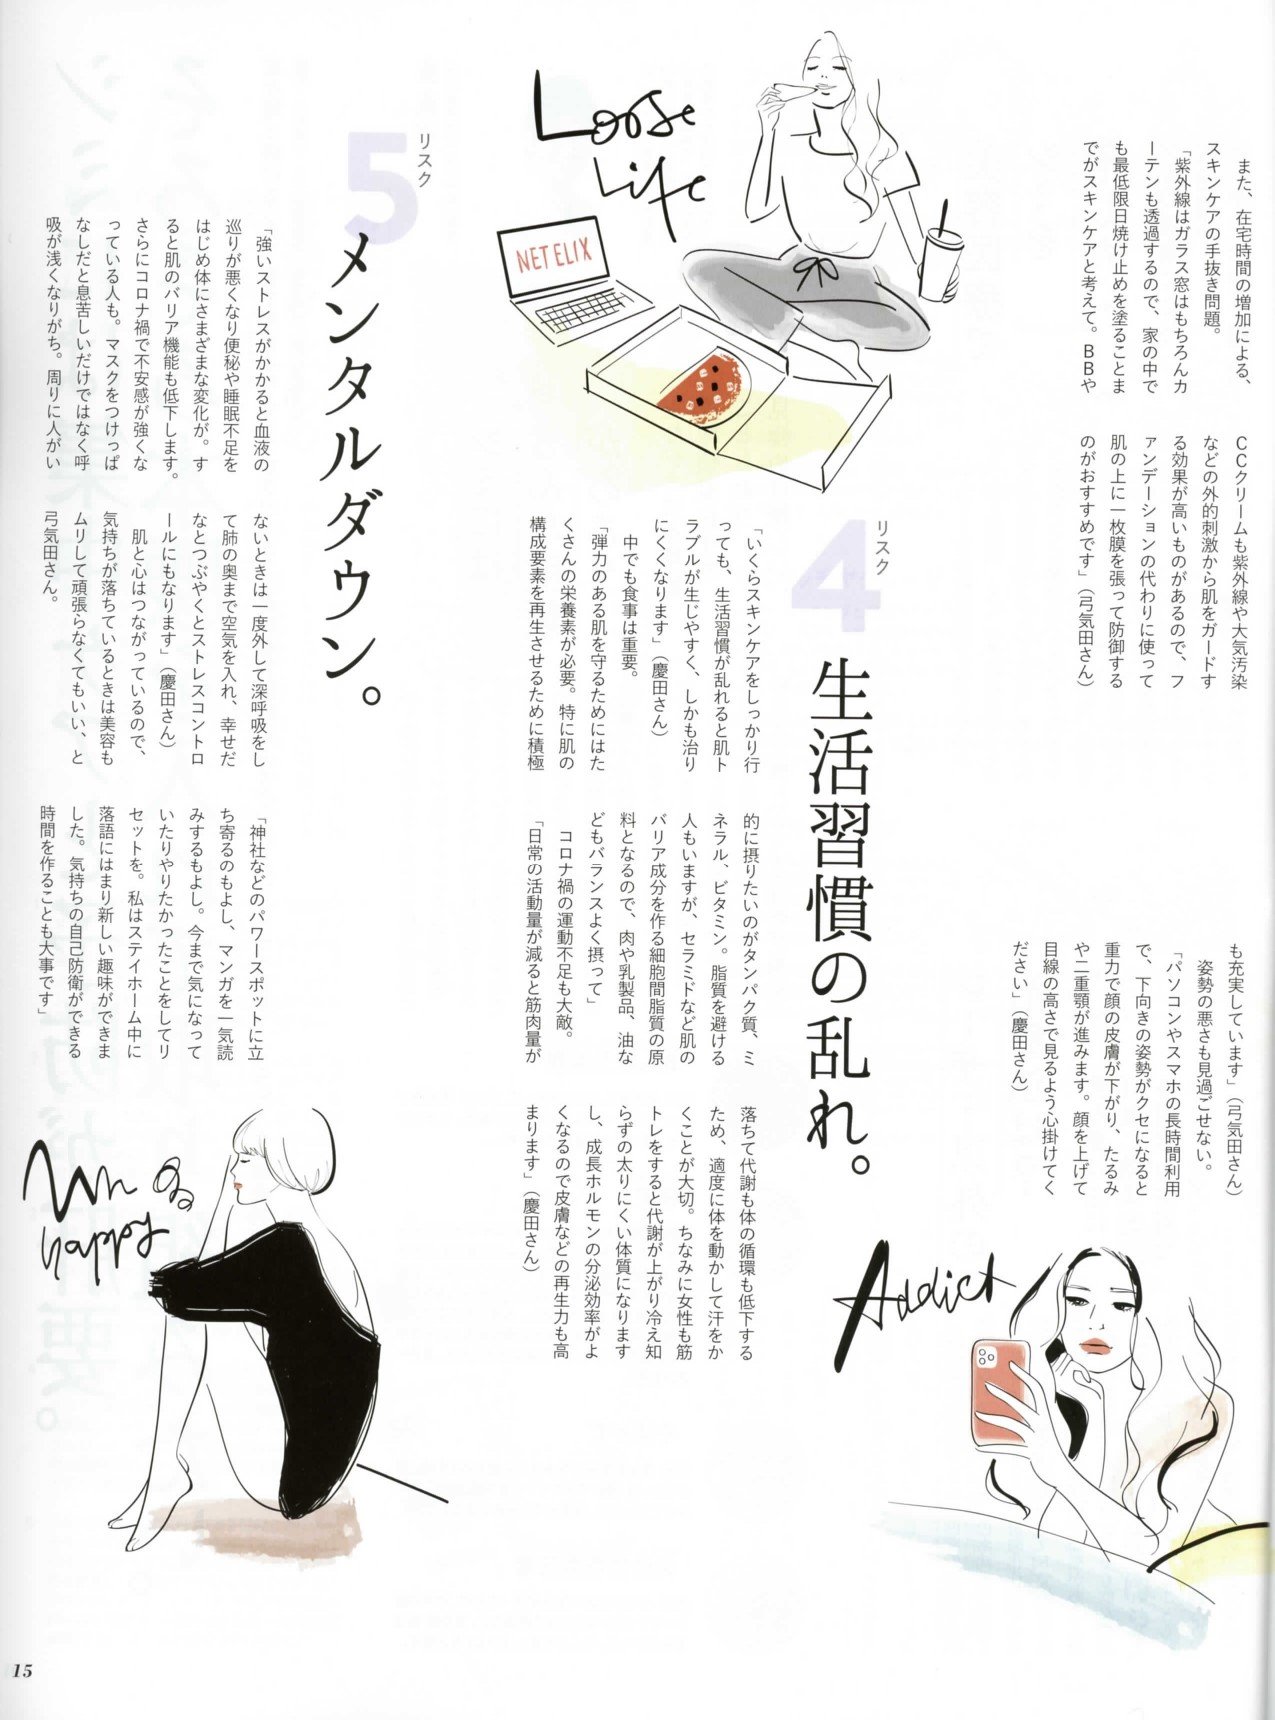 また、在宅時間の増加による、
スキンケアの手抜き問題。
「紫外線はガラス窓はもちろんカ
ーテンも透過するので、家の中で
も最低限日焼け止めを塗ることま
でがスキンケアと考えて。BBや
CCクリームも紫外線や大気汚染
などの外的刺激から肌をガードす
る効果が高いものがあるので、フ
ァンデーションの代わりに使って
肌の上に一枚膜を張って防御する
のがおすすめです」（弓気田さん）
も充実しています」（弓気田さん）
姿勢の悪さも見過ごせない。
「パソコンやスマホの長時間利用
で、下向きの姿勢がクセになると
重力で顔の皮膚が下がり、たるみ
や二重顎が進みます。顔を上げて
目線の高さで見るよう心掛けてく
ださい」（慶田さん）
Addict
Loose
Life
NETELIX
リスク
4
生活習慣の乱れ。
「いくらスキンケアをしっかり行
っても、生活習慣が乱れると肌ト
ラブルが生じやすく、しかも治り
にくくなります」（慶田さん）
中でも食事は重要。
「弾力のある肌を守るためにはた
くさんの栄養素が必要。特に肌の
構成要素を再生させるために積極
的に摂りたいのがタンパク質、ミ
ネラル、ビタミン。脂質を避ける
人もいますが、セラミドなど肌の
バリア成分を作る細胞間脂質の原
料となるので、肉や乳製品、油な
どもバランスよく摂って」
コロナ禍の運動不足も大敵。
「日常の活動量が減ると筋肉量が
落ちて代謝も体の循環も低下する
ため、適度に体を動かして汗をか
くことが大切。ちなみに女性も筋
トレをすると代謝が上がり冷え知
らずの太りにくい体質になります
し、成長ホルモンの分泌効率がよ
くなるので皮膚などの再生力も高
まります」（慶田さん）
リスク
5
メンタルダウン。
「強いストレスがかかると血液の
巡りが悪くなり便秘や睡眠不足を
はじめ体にさまざまな変化が。す
ると肌のバリア機能も低下します。
さらにコロナ禍で不安感が強くな
っている人も。マスクをつけっぱ
なしだと息苦しいだけではなく呼
吸が浅くなりがち。周りに人がい
ないときは一度外して深呼吸をし
て肺の奥まで空気を入れ、幸せだ
なとつぶやくとストレスコントロ
ールにもなります」（慶田さん）
肌と心はつながっているので、
気持ちが落ちているときは美容も
ムリして頑張らなくてもいい、と
弓気田さん。
「神社などのパワースポットに立
ち寄るのもよし、マンガを一気読
みするもよし。今まで気になって
いたりやりたかったことをしてリ
セットを。私はステイホーム中に
落語にはまり新しい趣味ができま
した。気持ちの自己防衛ができる
時間を作ることも大事です」
happy
15